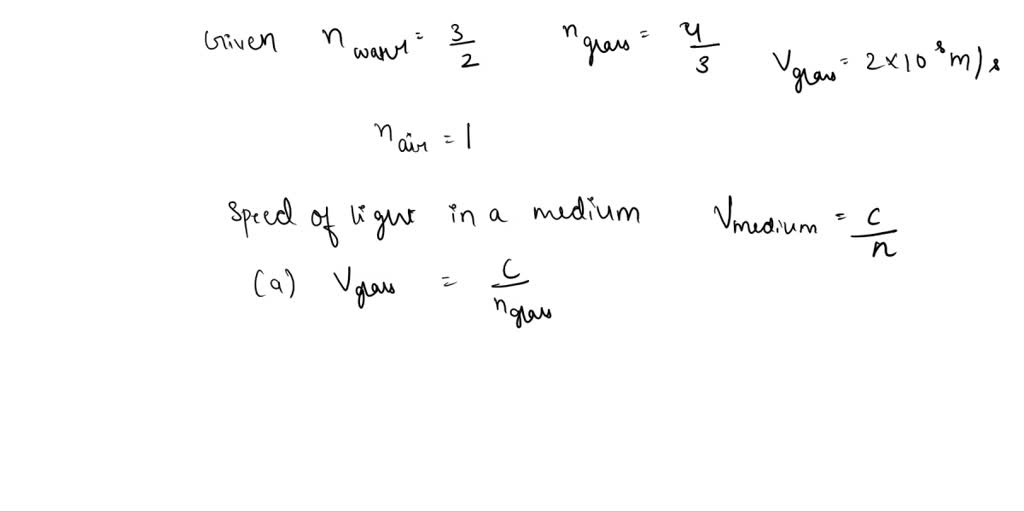 Given n water = 3/2 n glass = 4/3 V glass = 2×10⁸ m/s
n air = 1
Speed of light in a medium V medium = c/n
(a) V glass = c/n glass